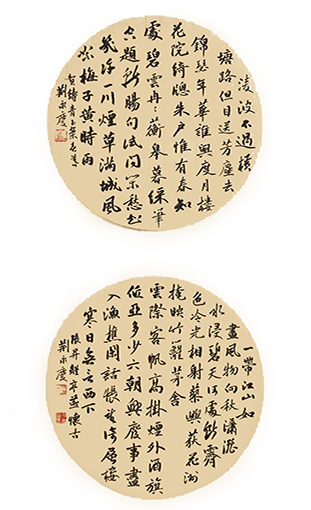 凌波不過橫
塘路但目送芳塵去
錦瑟年華誰與度月樓
花院綺牕朱戶惟有春知
處碧雲冉冉蘅皋暮綵筆
空題斷腸句試問閒愁都
幾許一川煙草滿城風
絮梅子黃時雨
賀鑄青玉案
荊永慶
一帶江山如
畫風物向秋瀟灑
水浸碧天何處斷霽
色冷光相射蓼嶼荻花洲
掩映竹籬茅舍
雲際客帆高掛煙外酒旗
低亞多少六朝興廢事盡
入漁樵閒話悵望倚層樓
寒日無言西下
張昇離亭燕懷古
荊永慶